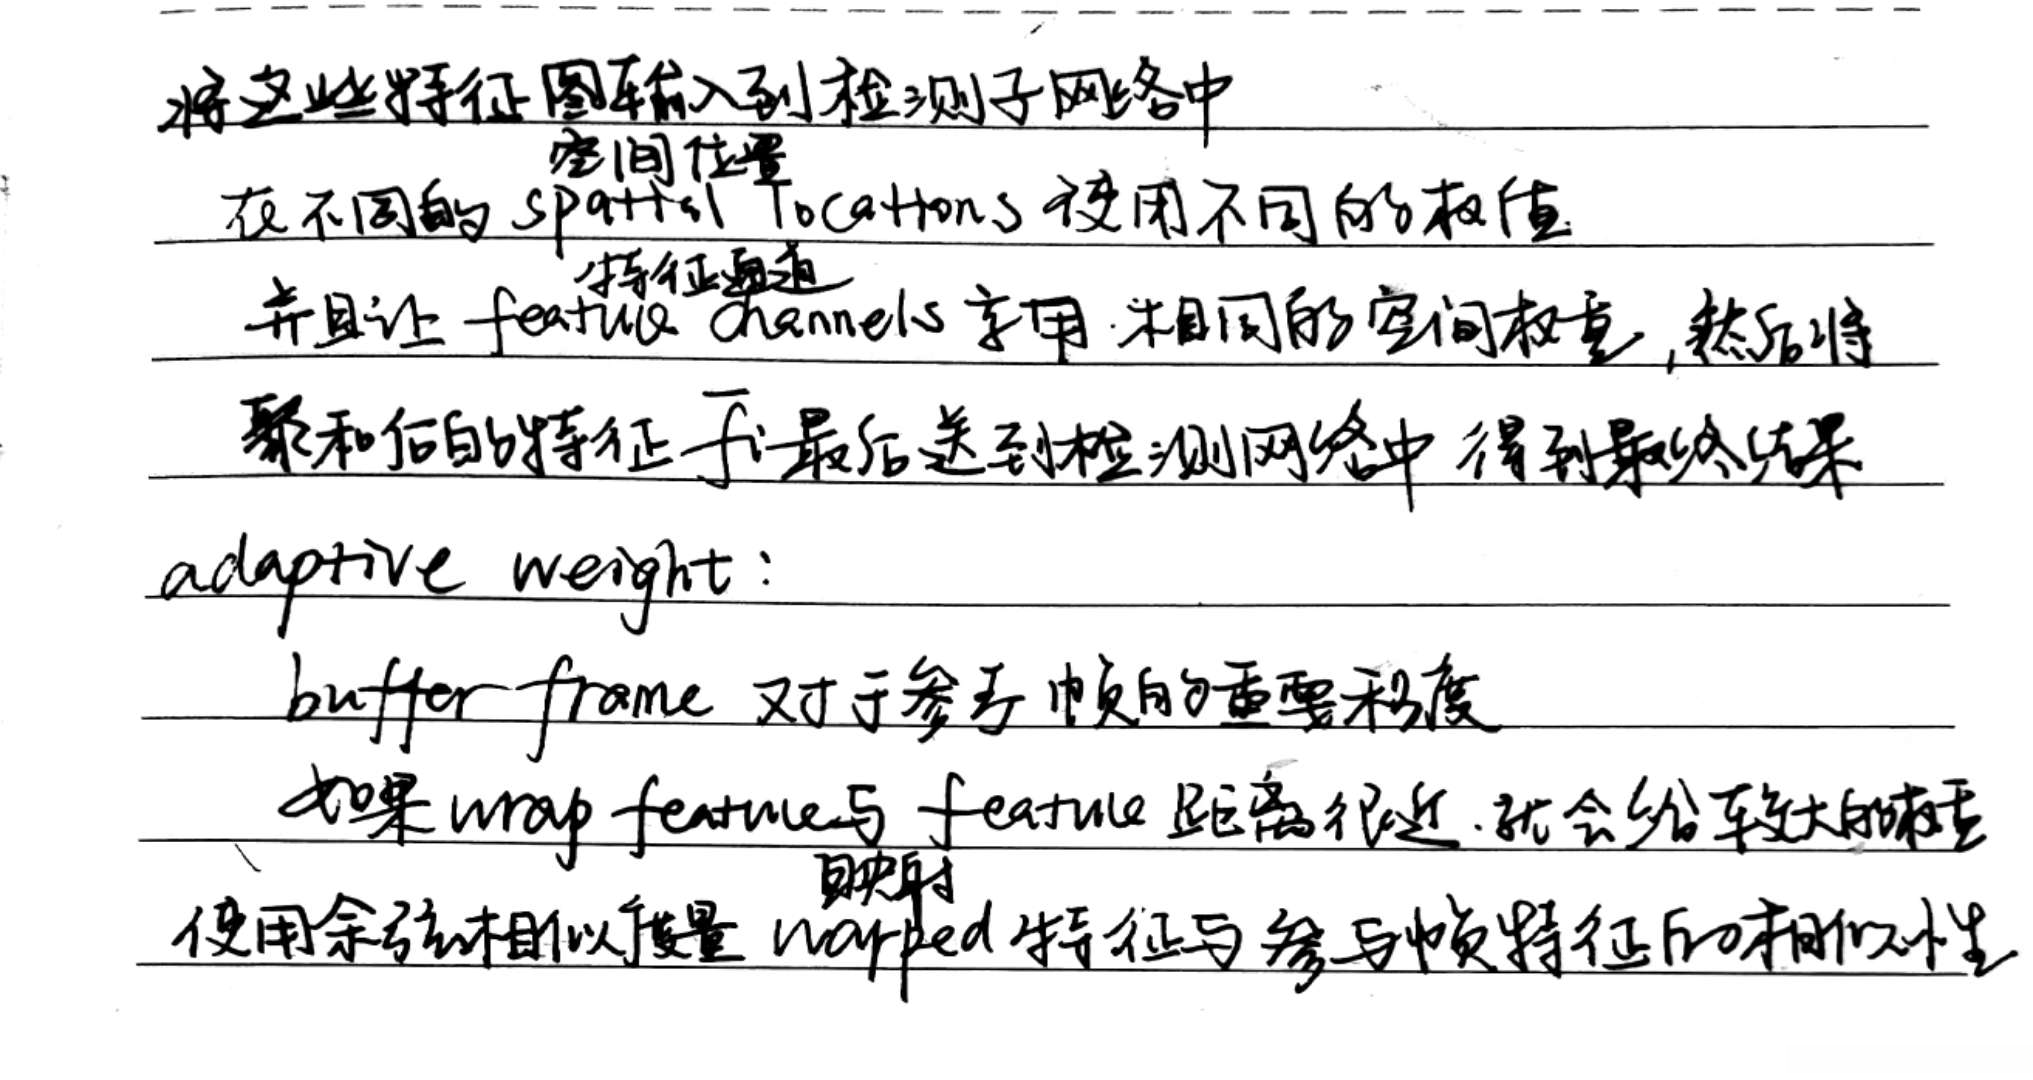 将这些特征图输入到检测子网络中
空间位置
在不同的 spatial locations 使用不同的权值
特征通道
并且让 feature channels 享用相同的空间权重,然后将
聚和后的特征 f̄i 最后送到检测网络中 得到最终结果
adaptive weight:
buffer frame 对于参考帧的重要程度
如果 wrap feature 与 feature 距离很近.就会给较大的权重
映射
使用余弦相似度量 warped 特征与参与帧特征的相似性